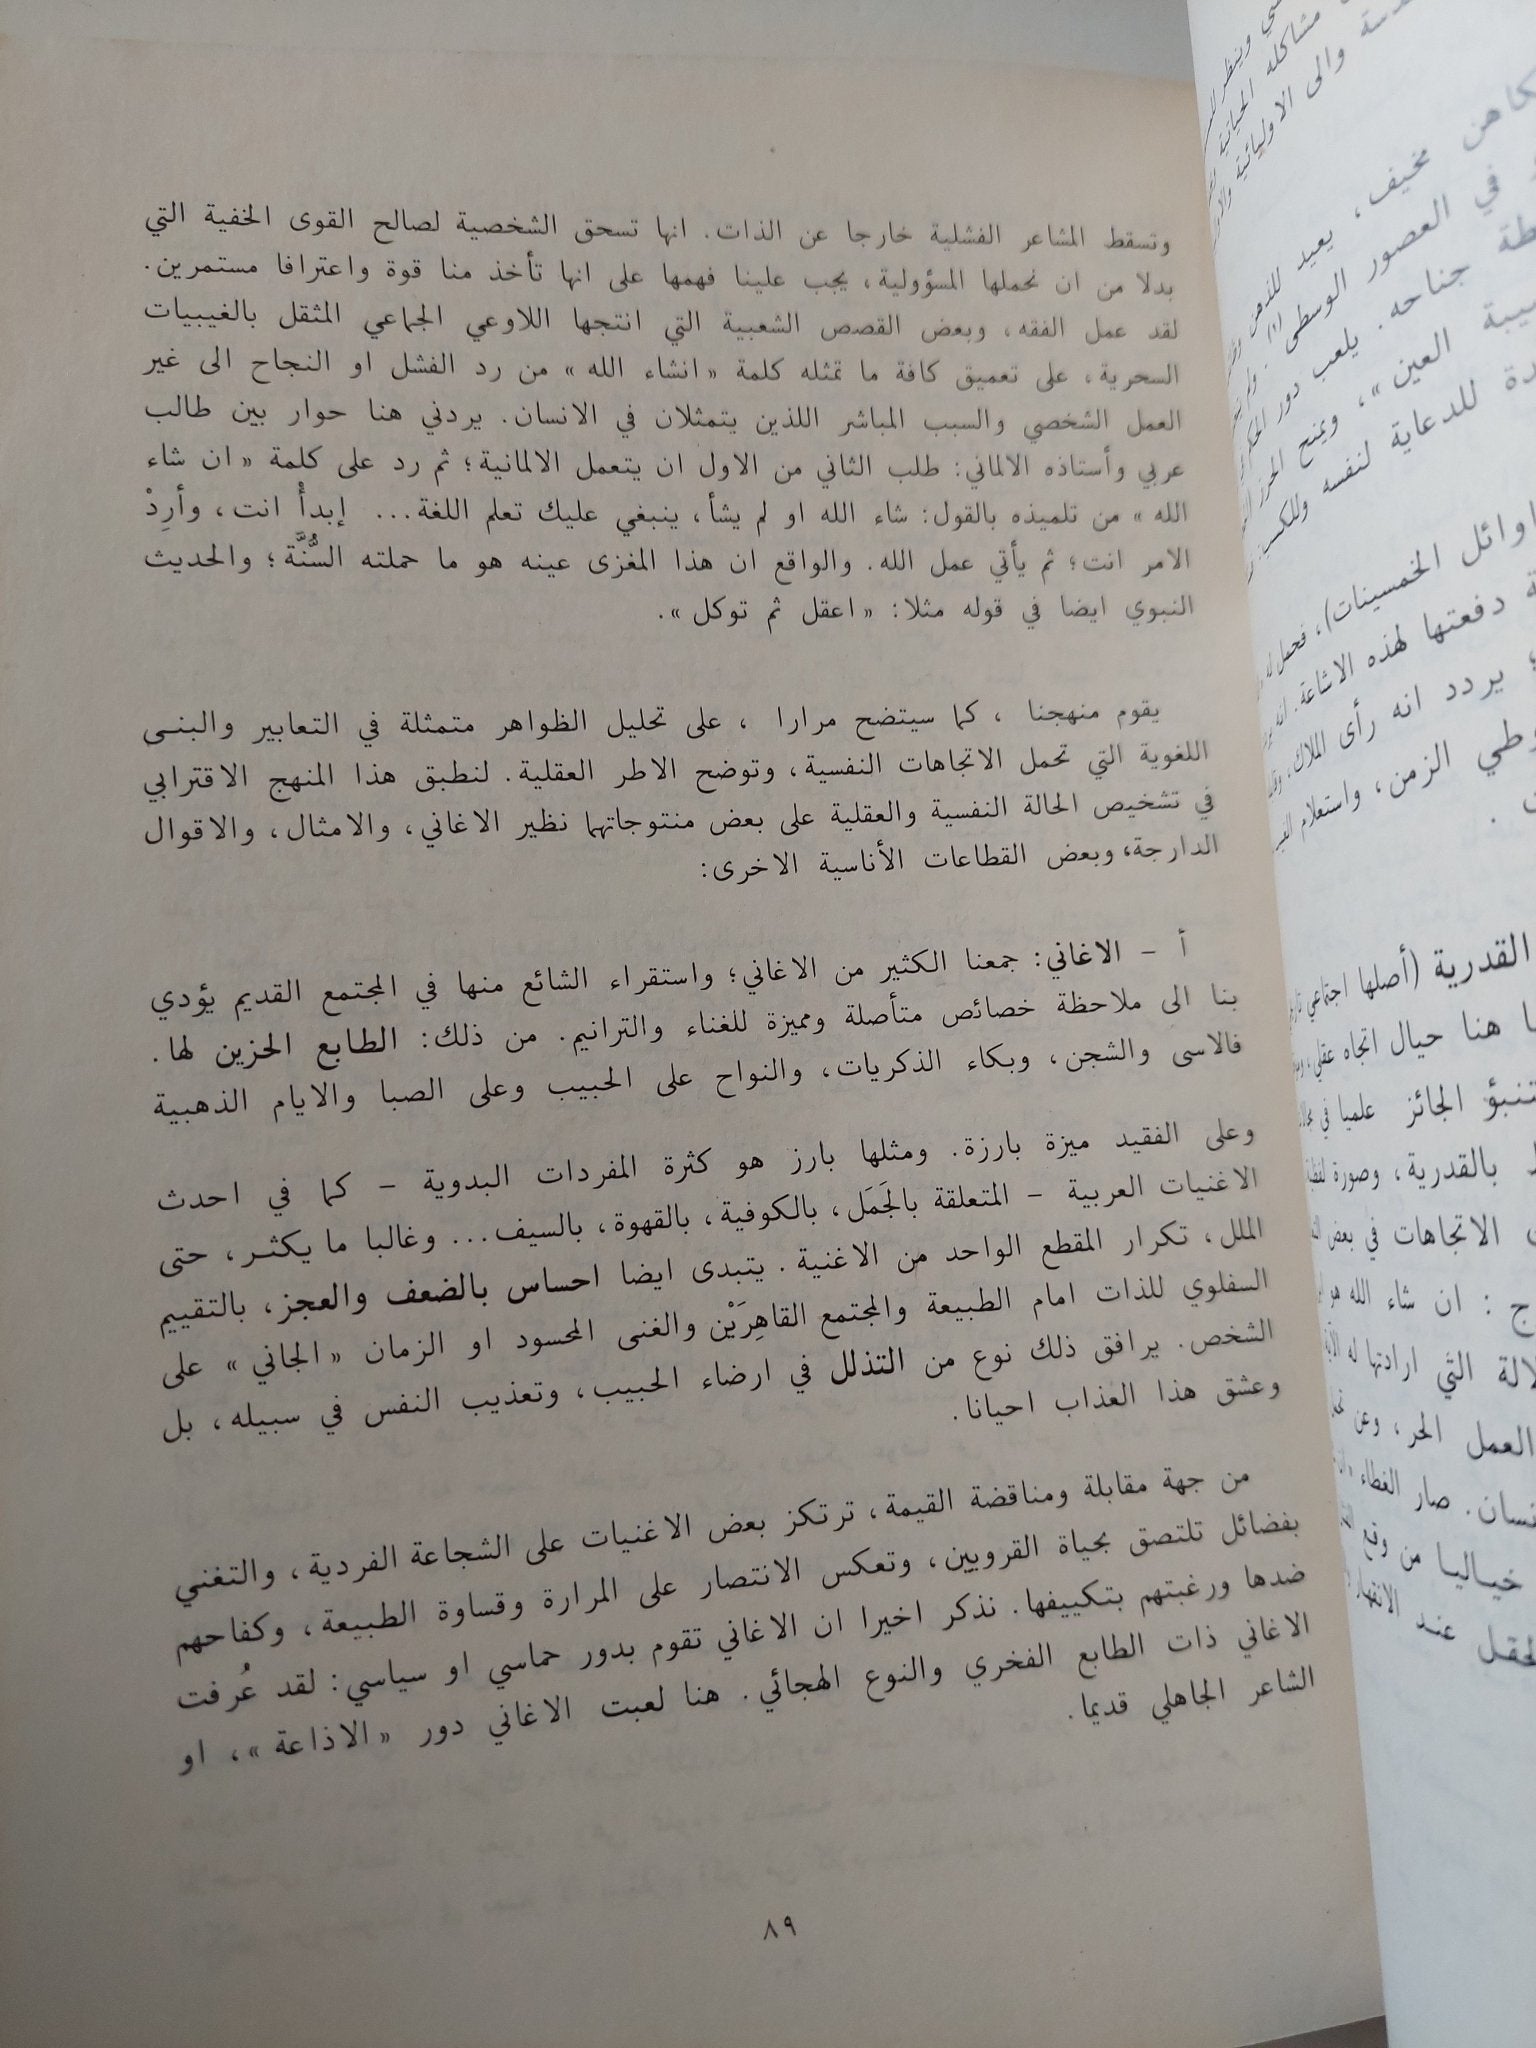 وتسقط المشاعر الفشلية خارجا عن الذات. انها تسحق الشخصية لصالح القوى الخفية التي
بدلا من ان نحملها المسؤولية، يجب علينا فهمها على انها تأخذ منا قوة واعترافا مستمرين.
لقد عمل الفقه، وبعض القصص الشعبية التي انتجها اللاوعي الجماعي المثقل بالغيبيات
السحرية، على تعميق كافة ما تمثله كلمة «انشاء الله» من رد الفشل او النجاح الى غير
العمل الشخصي والسبب المباشر اللذين يتمثلان في الانسان. يردني هنا حوار بين طالب
عربي وأستاذه الالماني: طلب الثاني من الاول ان يتعمل الالمانية؛ ثم رد على كلمة «ان شاء
الله» من تلميذه بالقول: شاء الله او لم يشأ، ينبغي عليك تعلم اللغة... إبدأْ انت، وأرِدْ
الامر انت؛ ثم يأتي عمل الله. والواقع ان هذا المغزى عينه هو ما حملته السُّنَّة؛ والحديث
النبوي ايضا في قوله مثلا: «اعقل ثم توكل».
يقوم منهجنا، كما سيتضح مرارا، على تحليل الظواهر متمثلة في التعابير والبنى
اللغوية التي تحمل الاتجاهات النفسية، وتوضح الاطر العقلية. لنطبق هذا المنهج الاقترابي
في تشخيص الحالة النفسية والعقلية على بعض منتوجاتهما نظير الاغاني، والامثال، والاقوال
الدارجة، وبعض القطاعات الأناسية الاخرى:
أ - الاغاني: جمعنا الكثير من الاغاني؛ واستقراء الشائع منها في المجتمع القديم يؤدي
بنا الى ملاحظة خصائص متأصلة ومميزة للغناء والترانيم. من ذلك: الطابع الحزين لها.
فالاسى والشجن، وبكاء الذكريات، والنواح على الحبيب وعلى الصبا والايام الذهبية
وعلى الفقيد ميزة بارزة. ومثلها بارز هو كثرة المفردات البدوية - كما في احدث
الاغنيات العربية - المتعلقة بالجَمَل، بالكوفية، بالقهوة، بالسيف... وغالبا ما يكثر، حتى
الملل، تكرار المقطع الواحد من الاغنية. يتبدى ايضا احساس بالضعف والعجز، بالتقييم
السفلوي للذات امام الطبيعة والمجتمع القاهِرَيْن والغنى المحسود او الزمان «الجاني» على
الشخص. يرافق ذلك نوع من التذلل في ارضاء الحبيب، وتعذيب النفس في سبيله، بل
وعشق هذا العذاب احيانا.
من جهة مقابلة ومناقضة القيمة، ترتكز بعض الاغنيات على الشجاعة الفردية، والتغني
بفضائل تلتصق بحياة القرويين، وتعكس الانتصار على المرارة وقساوة الطبيعة، وكفاحهم
ضدها ورغبتهم بتكييفها. نذكر اخيرا ان الاغاني تقوم بدور حماسي او سياسي: لقد عُرفت
الاغاني ذات الطابع الفخري والنوع الهجائي. هنا لعبت الاغاني دور «الاذاعة»، او
الشاعر الجاهلي قديما.
٨٩
كاهن مخيف، يعيد للذهن
في العصور الوسطى (١).
جناحه. يلعب دور
العين»، ويمنح الحرز
للدعاية لنفسه
اوائل الخمسينات)، فحمل له
دفعتها لهذه الاشاعة. انه
يردد انه رأى الملاك،
الزمن، واستعلام
القدرية (أصلها اجتماعي
هنا حيال اتجاه عقلي،
الجائز علميا في
بالقدرية، وصورة
الاتجاهات في بعض
ان شاء الله هو
التي ارادتها له
العمل الحر، وعن
صار الغطاء
خياليا من وقع
عند الانهيار